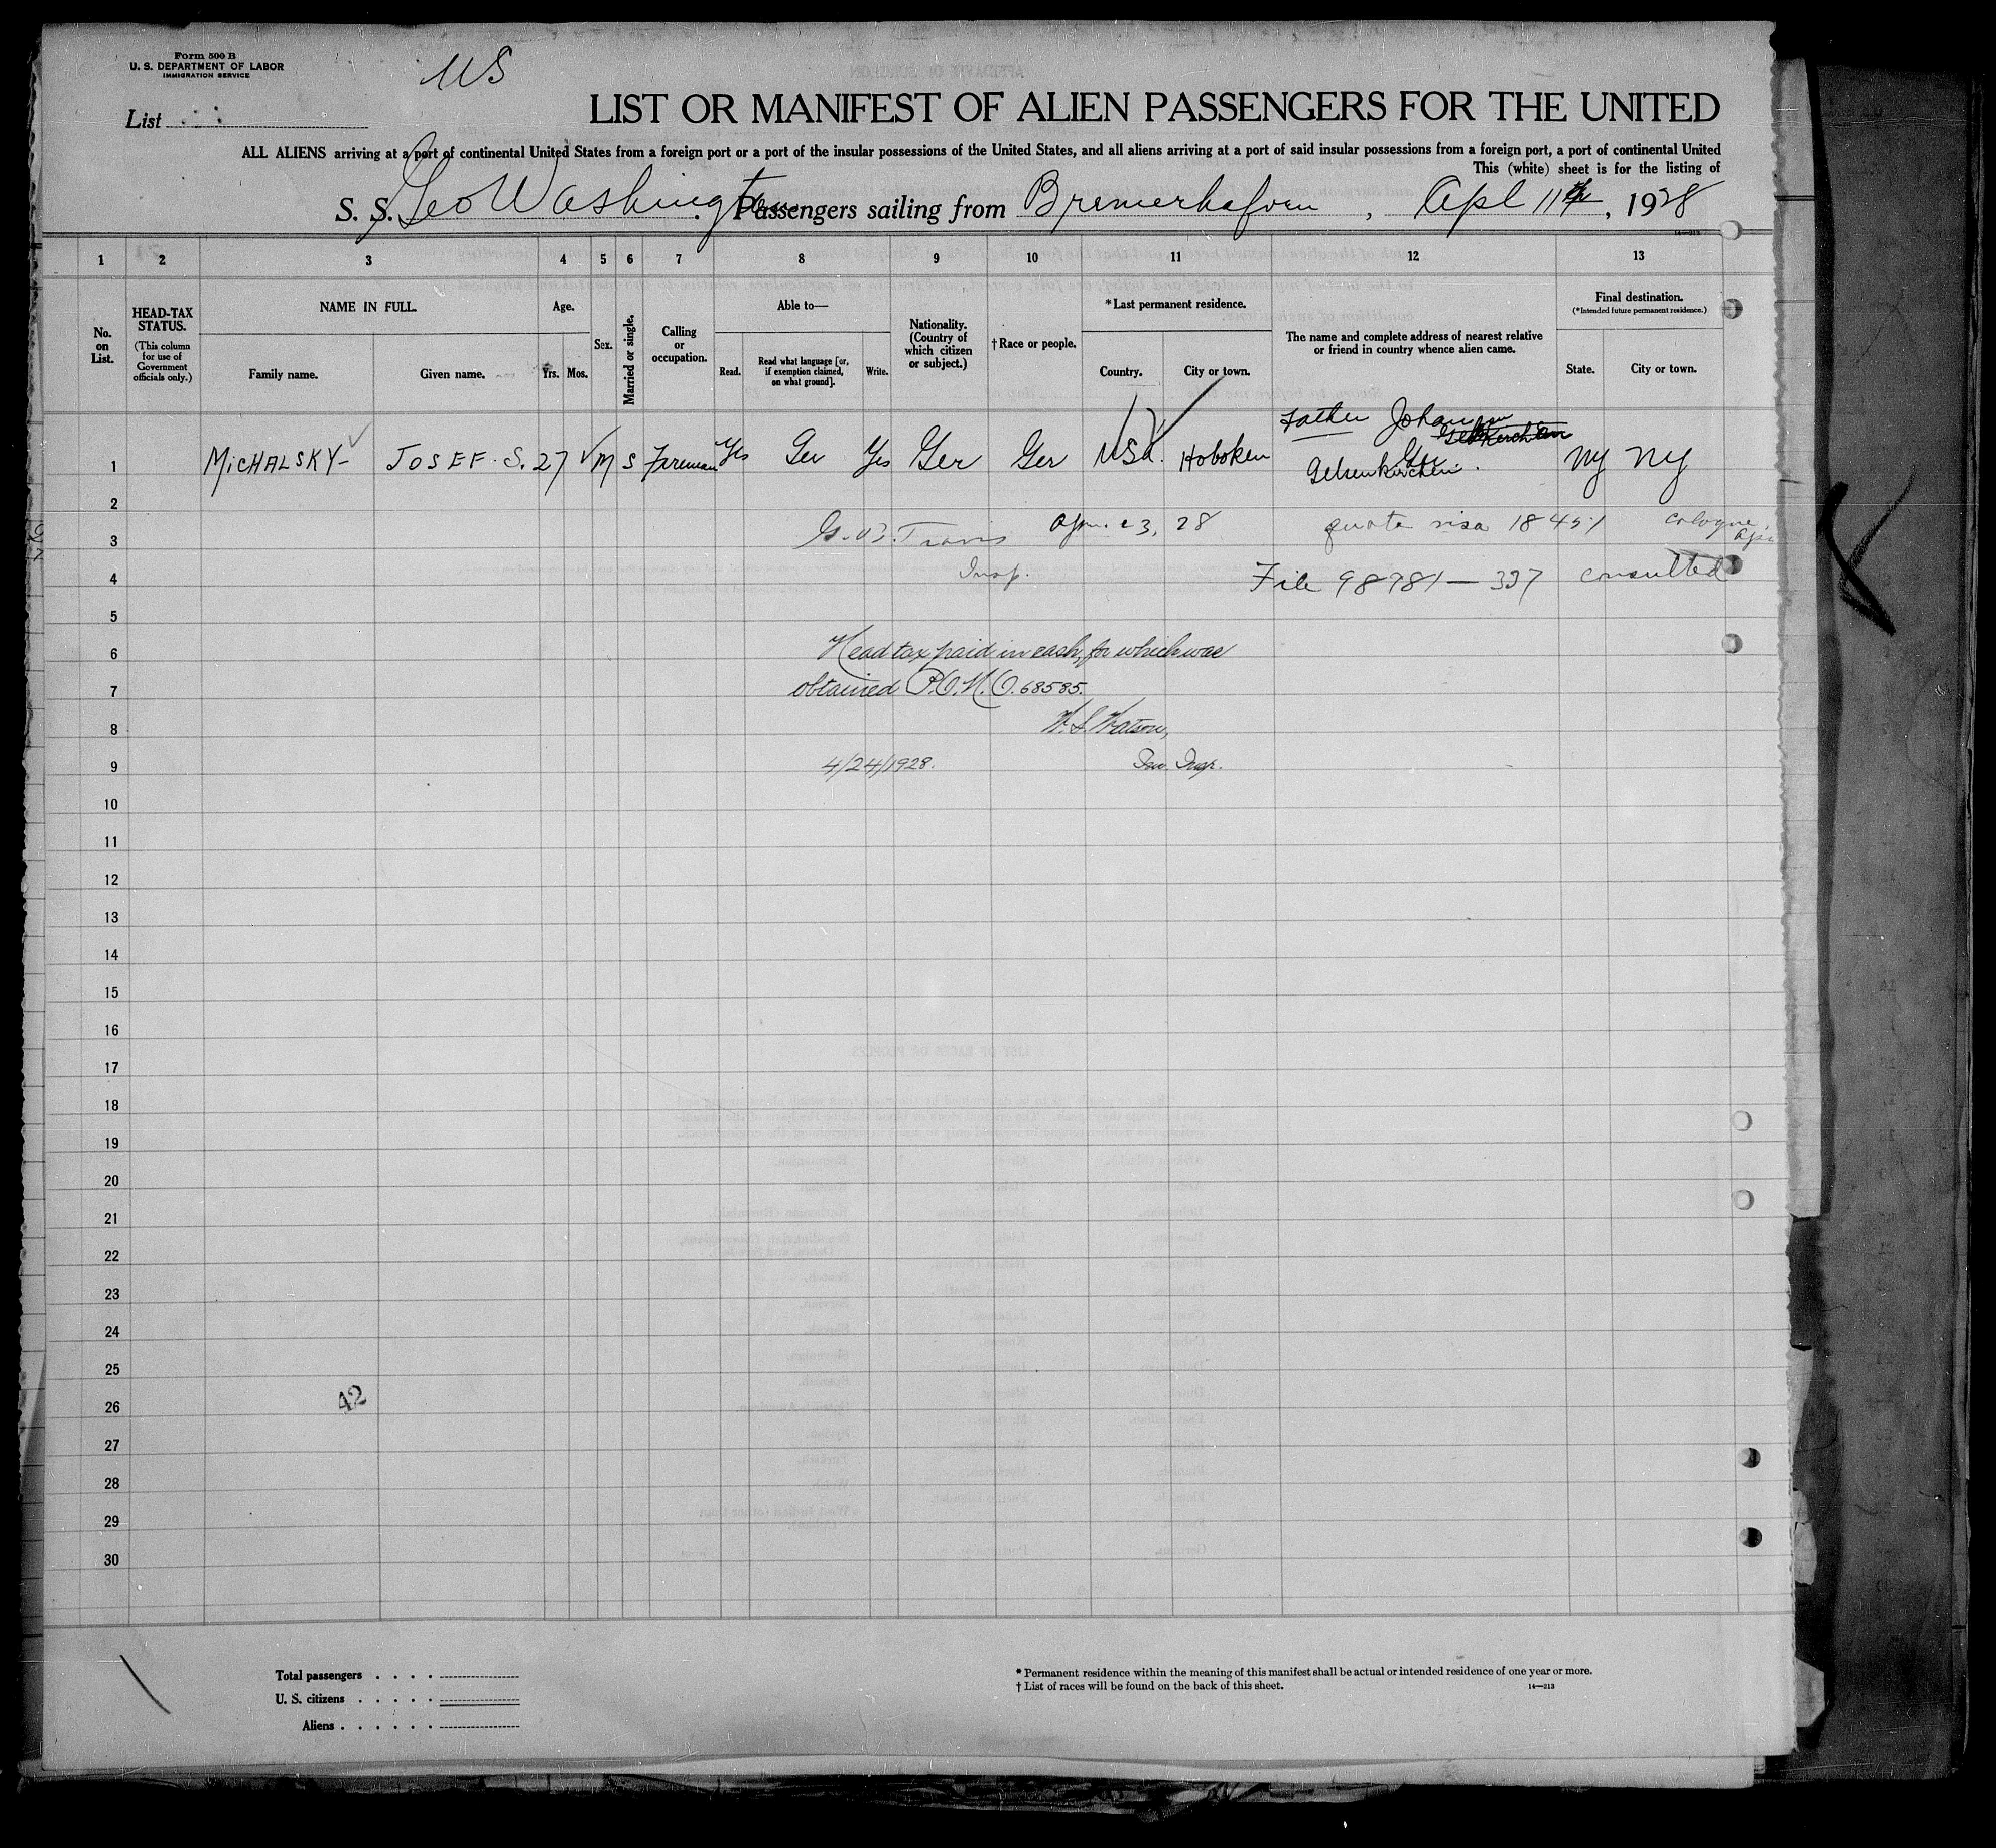 Form 500 B
U. S. DEPARTMENT OF LABOR
IMMIGRATION SERVICE
US
List
LIST OR MANIFEST OF ALIEN PASSENGERS FOR THE UNITED
ALL ALIENS arriving at a port of continental United States from a foreign port or a port of the insular possessions of the United States, and all aliens arriving at a port of said insular possessions from a foreign port, a port of continental United
This (white) sheet is for the listing of
S. S. Geo Washington Passengers sailing from Bremerhaven, Apl 11th, 1928
14—213
1 2 3 4 5 6 7 8 9 10 11 12 13
No. on List.
HEAD-TAX STATUS.
(This column for use of Government officials only.)
NAME IN FULL.
Family name. Given name.
Age.
Yrs. Mos.
Sex.
Married or single.
Calling or occupation.
Able to—
Read. Read what language [or, if exemption claimed, on what ground]. Write.
Nationality. (Country of which citizen or subject.)
†Race or people.
*Last permanent residence.
Country. City or town.
The name and complete address of nearest relative or friend in country whence alien came.
Final destination.
(*Intended future permanent residence.)
State. City or town.
1 MiCHALSKY- JOSEF. S. 27 M S Fireman Yes Ger Yes Ger Ger USA. Hoboken Father Johann Gelsenkirchen Ger. NY NY
2
3 G. B. Travis Apr. 23, 28 quota visa 18451 Cologne,
4 Insp. File 98781—337 consulted
5
6 Head tax paid in cash, for which was
7 obtained P.O.M.O. 68585.
8 W. S. Watson,
9 4/24/1928. Imm. Insp.
10
11
12
13
14
15
16
17
18
19
20
21
22
23
24
25
26
42
27
28
29
30
Total passengers . . . .
U. S. citizens . . . . .
Aliens . . . . . .
* Permanent residence within the meaning of this manifest shall be actual or intended residence of one year or more.
† List of races will be found on the back of this sheet.
14—213